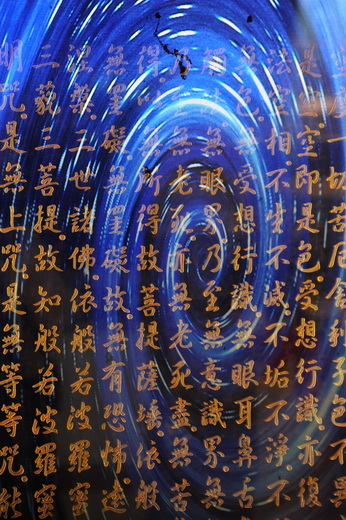 度一切苦厄舍利子色不
是空空即是色受想行識亦復
法空相不生不滅不垢不淨不
無色無受想行識無眼耳鼻舌
觸法無眼界乃至無意識界無
至無老死亦無老死盡無苦
得以無所得故菩提薩埵依般
無罣礙無罣礙故無有恐怖遠
涅槃三世諸佛依般若波羅蜜
三藐三菩提故知般若波羅蜜
明咒是無上咒是無等等咒能